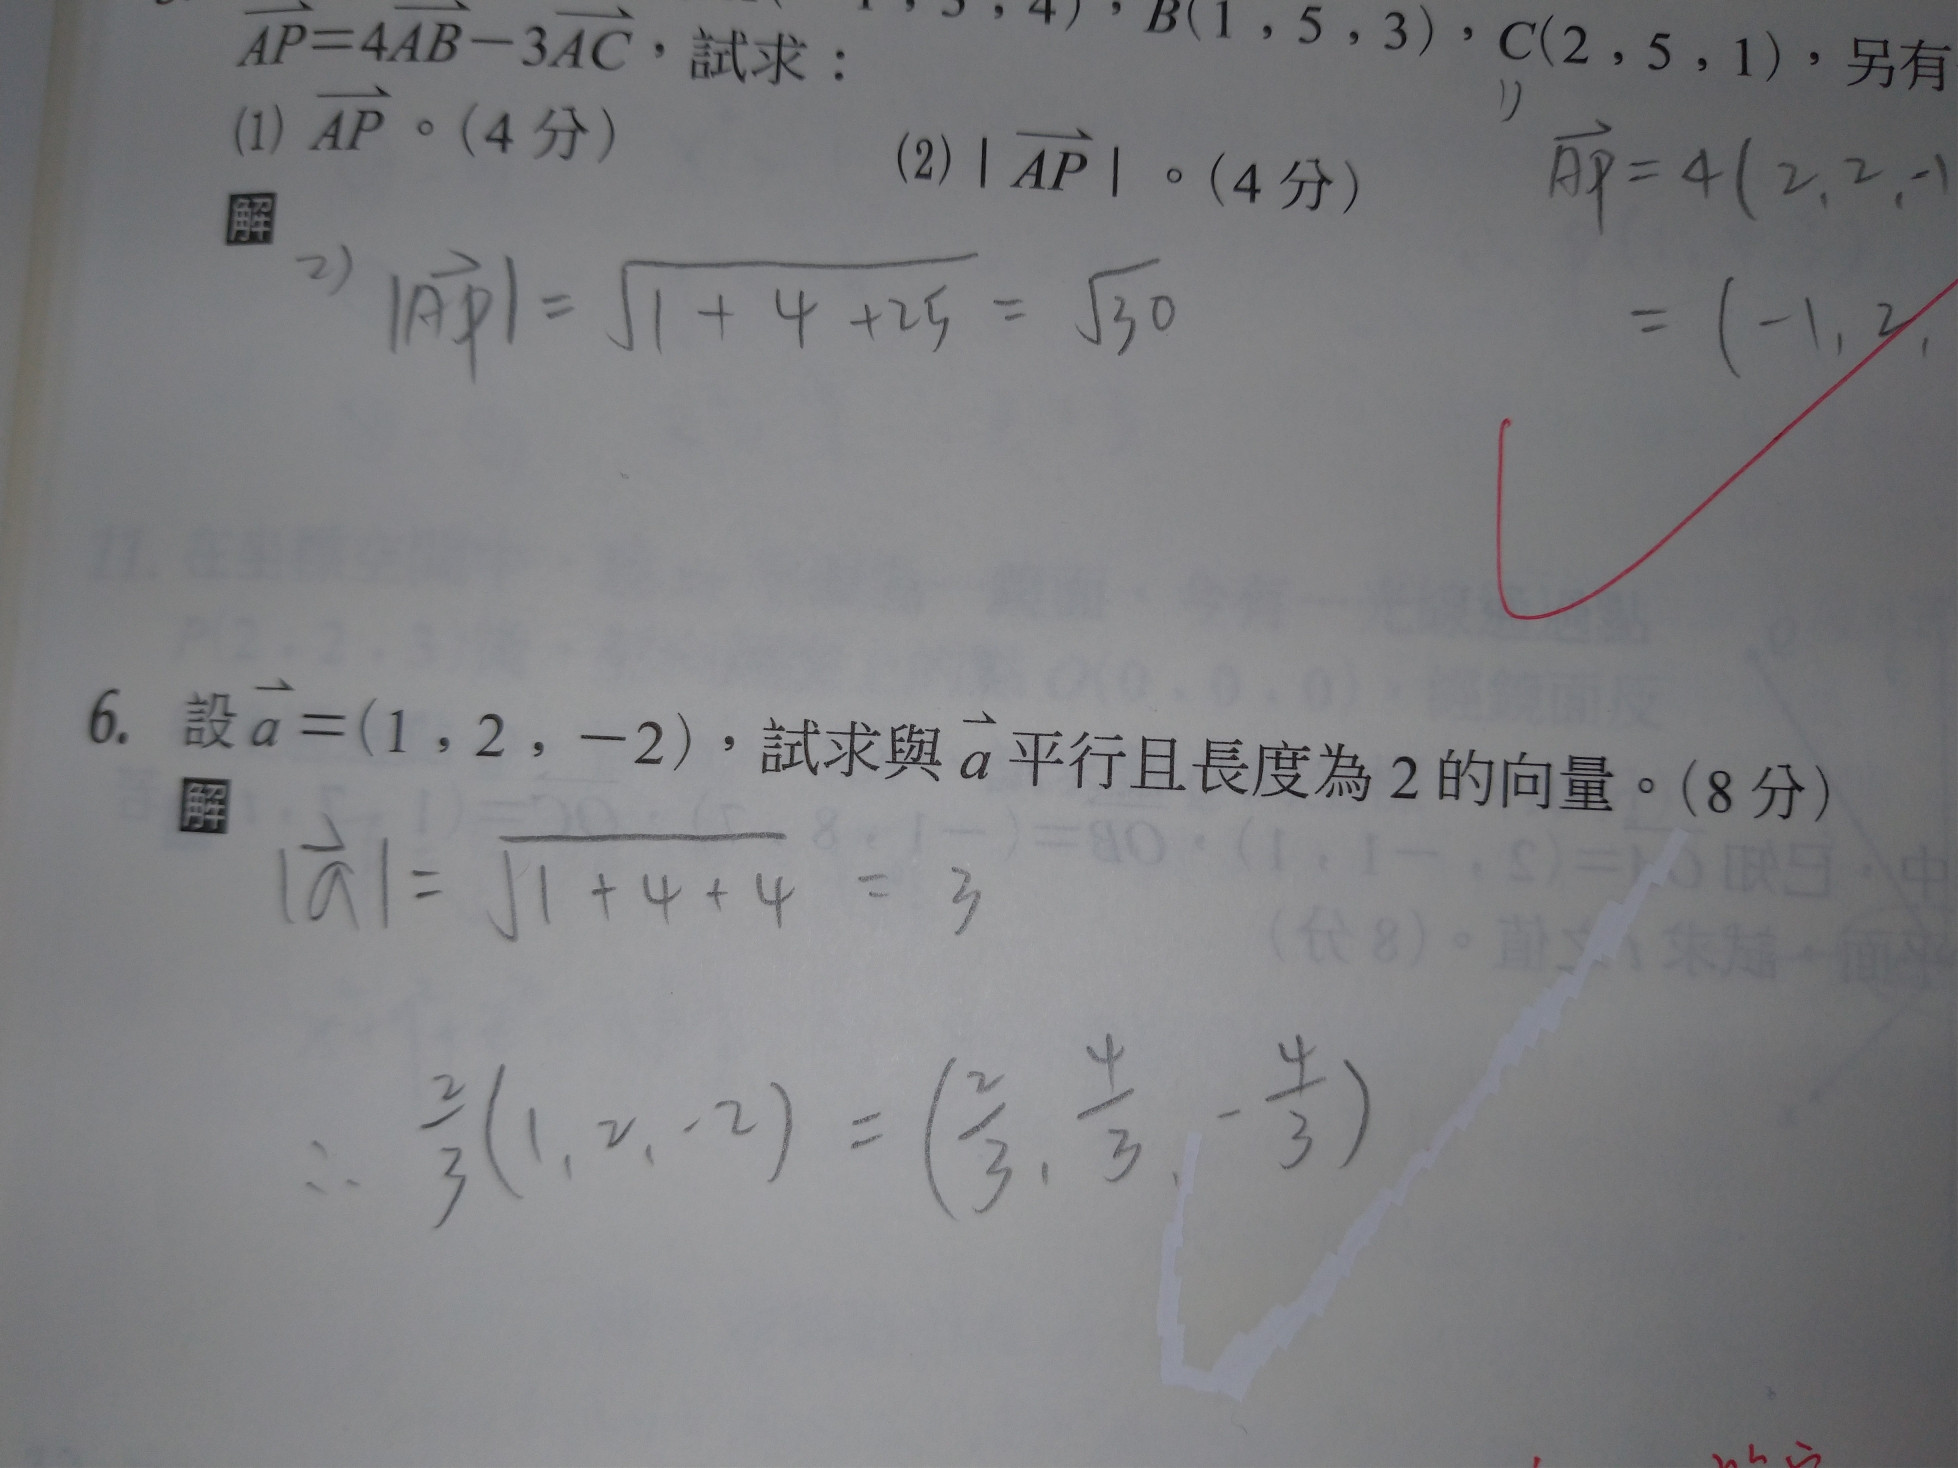 4)，B(1，5，3)，C(2，5，1)，另有
AP=4AB−3AC，試求：
(1) AP。(4分)
(2) | AP |。(4分)
1)
AP = 4(2, 2, -1
= (-1, 2,
解
2) |AP| = √1+4+25 = √30
6. 設 a =(1，2，−2)，試求與 a 平行且長度為 2 的向量。(8分)
解
|a| = √1+4+4 = 3
∴ 2/3 (1, 2, -2) = (2/3, 4/3, -4/3)